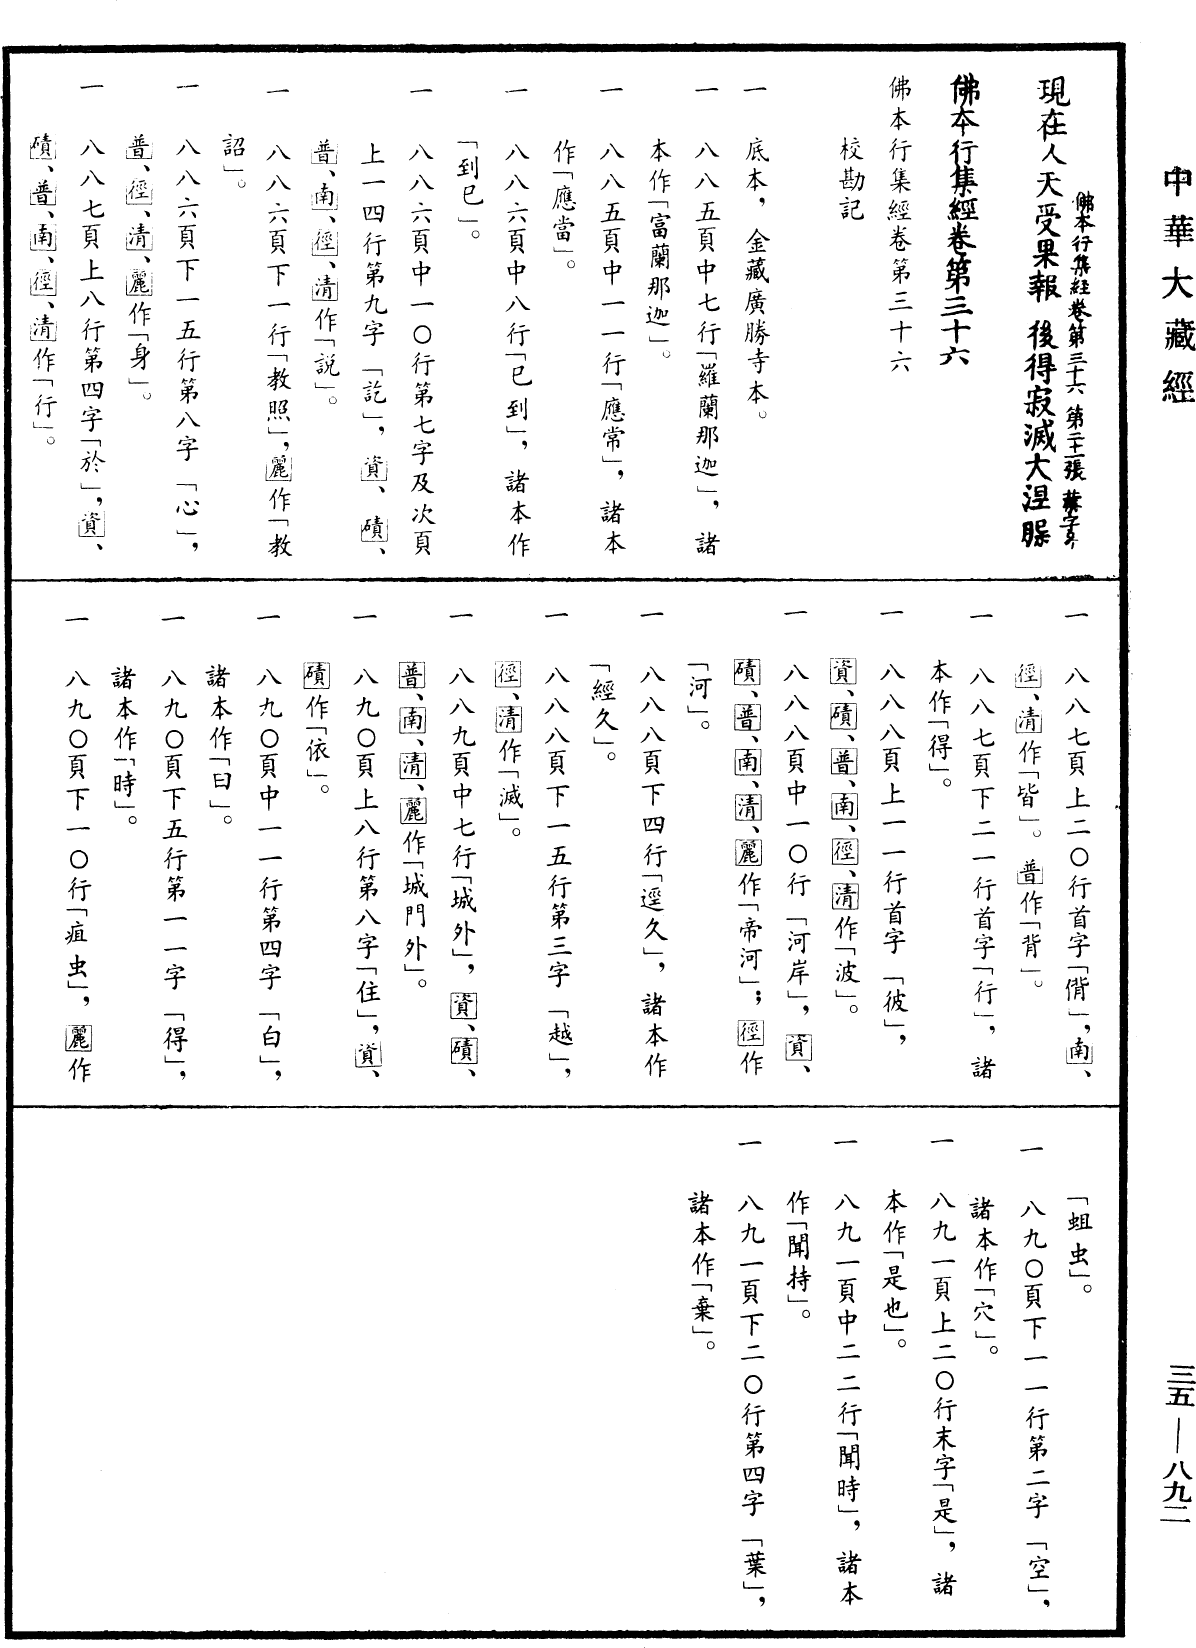 中華大藏經
現在人天受果報 後得寂滅大涅槃
佛本行集經卷第三十六 第二十二張
佛本行集經卷第三十六
佛本行集經卷第三十六
校勘記
一 底本，金藏廣勝寺本。
一 八八五頁中七行「羅蘭那迦」，諸
本作「富蘭那迦」。
一 八八五頁中一一行「應常」，諸本
作「應當」。
一 八八六頁中八行「已到」，諸本作
「到已」。
一 八八六頁中一〇行第七字及次頁
上一四行第九字「訖」，資、磧、
普、南、徑、清作「説」。
一 八八六頁下一行「教照」，麗作「教
詔」。
一 八八六頁下一五行第八字「心」，
普、徑、清、麗作「身」。
一 八八七頁上八行第四字「於」，資、
磧、普、南、徑、清作「行」。
一 八八七頁上二〇行首字「偕」，南、
徑、清作「皆」。普作「背」。
一 八八七頁下二一行首字「行」，諸
本作「得」。
一 八八八頁上一一行首字「彼」，
資、磧、普、南、徑、清作「波」。
一 八八八頁中一〇行「河岸」，資、
磧、普、南、清、麗作「帝河」；徑作
「河」。
一 八八八頁下四行「逕久」，諸本作
「經久」。
一 八八八頁下一五行第三字「越」，
徑、清作「滅」。
一 八八九頁中七行「城外」，資、磧、
普、南、清、麗作「城門外」。
一 八九〇頁上八行第八字「住」，資、
磧作「依」。
一 八九〇頁中一一行第四字「白」，
諸本作「曰」。
一 八九〇頁下五行第一一字「得」，
諸本作「時」。
一 八九〇頁下一〇行「疽虫」，麗作
「蛆虫」。
一 八九〇頁下一一行第二字「空」，
諸本作「穴」。
一 八九一頁上二〇行末字「是」，諸
本作「是也」。
一 八九一頁中二二行「聞時」，諸本
作「聞持」。
一 八九一頁下二〇行第四字「葉」，
諸本作「棄」。
三五—八九二